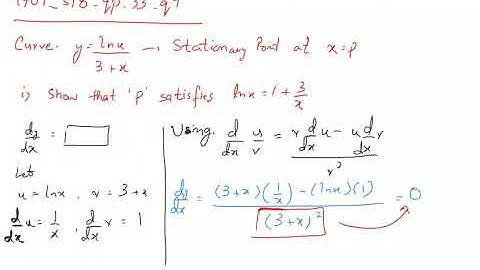 9701_s18_qp_33_q9
Curve. y = lnx / 3+x → Stationary Point at x=p
i) Show that 'p' satisfies lnx = 1 + 3/x
dy/dx =
Let
u = lnx, v = 3+x
d/dx u = 1/x, d/dx v = 1
Using, d/dx u/v = v d/dx u - u d/dx v / v²
dy/dx = (3+x)(1/x) - (lnx)(1) / (3+x)² = 0